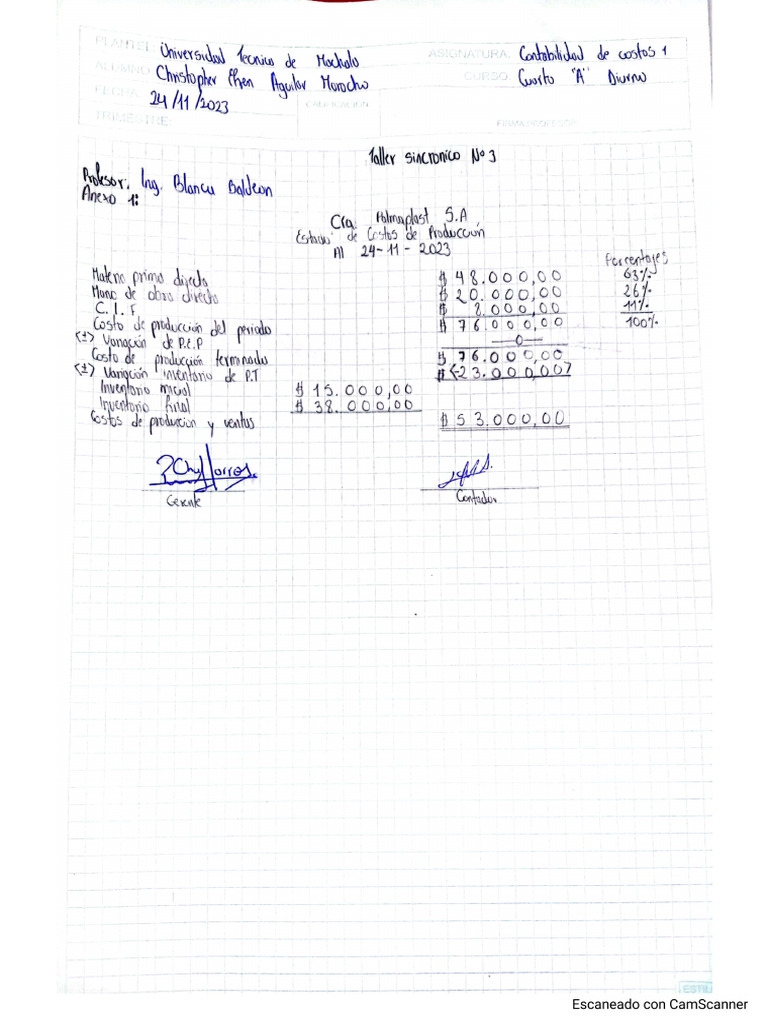 PLANTEL: Universidad Tecnica de Machala ASIGNATURA: Contabilidad de costos 1
ALUMNO: Christopher Efren Aguilar Morocho CURSO: Cuarto "A" Diurno
FECHA: 24/11/2023 CALIFICACIÓN
TRIMESTRE: FIRMA PROFESOR
Taller sincronico Nº 3
Profesor: Ing. Blanca Baldeon
Anexo 1:
Cía. Palmaplast S.A,
Estado de Costos de Producción
Al 24-11-2023
Porcentajes
Materia prima directa $ 48.000,00 63%
Mano de obra directa $ 20.000,00 26%
C.I.F. $ 8.000,00 11%
Costo de producción del periodo $ 76.000,00 100%
(±) Variación de P.E.P —0—
Costo de producción terminado $ 76.000,00
(±) Variación inventario de P.T $ <-23.000,00>
Inventario inicial $ 15.000,00
Inventario final $ 38.000,00
Costos de produccion y ventas $ 53.000,00
Gerente Contador
ESTIL
Escaneado con CamScanner